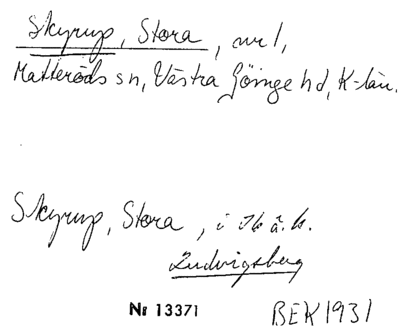 Skyrup, Stora, nr 1,
Matteröds sn, Västra Göinge hd, K-län.
Skyrup, Stora, i
Ludvigsberg
Nr 13371
BEK 1931